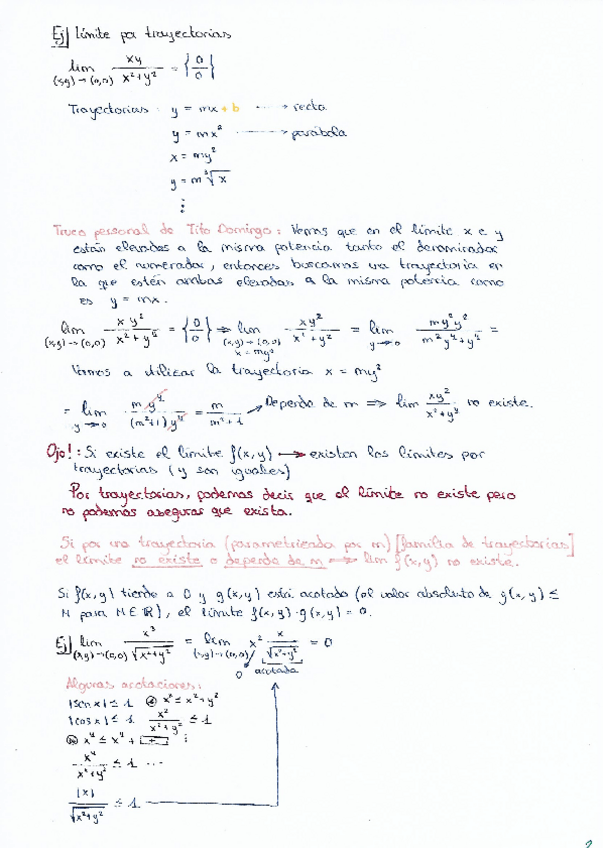 Ej| Límite por trayectorias
lim (x,y)→(0,0) xy / x²+y² = {0/0}
Trayectorias: y = mx + b ----→ recta
y = mx² ----→ parábola
x = my²
y = m ∛x
⋮
Truco personal de Tito Domingo: Vemos que en el límite x e y
están elevadas a la misma potencia tanto el denominador
como el numerador, entonces buscamos una trayectoria en
la que estén ambas elevadas a la misma potencia como
es y = mx.
lim (x,y)→(0,0) xy² / x²+y⁴ = {0/0} ⇒ lim (x,y)→(0,0) x=my² xy² / x²+y⁴ = lim y→0 my²y² / m²y⁴+y⁴ =
Vamos a utilizar la trayectoria x = my²
= lim y→0 m y⁴ / (m²+1) y⁴ = m / m²+1 → Depende de m ⇒ lim xy² / x²+y⁴ no existe.
Ojo!: Si existe el límite f(x,y) → existen los límites por
trayectorias (y son iguales)
Por trayectorias, podemos decir que el límite no existe pero
no podemos asegurar que exista.
Si por una trayectoria (parametrizada por m) [familia de trayectorias]
el límite no existe o depende de m ⇒ lim f(x,y) no existe.
Si f(x,y) tiende a 0 y g(x,y) está acotado (el valor absoluto de g(x,y) ≤
M para M ∈ ℝ), el límite f(x,y)·g(x,y) = 0.
Ej| lim (x,y)→(0,0) x³ / √x²+y² = lim (x,y)→(0,0) x² x / √x²+y² = 0
0 acotada
Algunas acotaciones:
|sen x| ≤ 1 x² ≤ x²+y²
|cos x| ≤ 1 x² / x²+y² ≤ 1
x⁴ ≤ x⁴ + [+] ⋮
x⁴ / x⁴+y² ≤ 1 ...
|x| / √x²+y² ≤ 1
2